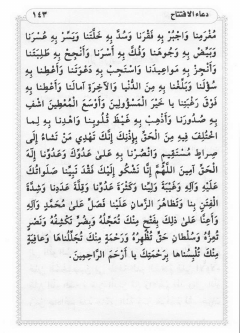 دعاء الافتتاح ١٤٣
مُغْرَمِنَا وَاجْبُرْ بِهِ فَقْرَنَا وَسُدَّ بِهِ خَلَّتَنَا وَيَسِّرْ بِهِ عُسْرَنَا
وَبَيِّضْ بِهِ وُجُوهَنَا وَفُكَّ بِهِ أَسْرَنَا وَأَنْجِحْ بِهِ طَلِبَتَنَا
وَأَنْجِزْ بِهِ مَوَاعِيدَنَا وَاسْتَجِبْ بِهِ دَعْوَتَنَا وَأَعْطِنَا بِهِ
سُؤْلَنَا وَبَلِّغْنَا بِهِ مِنَ الدُّنْيَا وَالآخِرَةِ آمَالَنَا وَأَعْطِنَا بِهِ
فَوْقَ رَغْبَتِنَا يَا خَيْرَ الْمَسْؤُولِينَ وَأَوْسَعَ الْمُعْطِينَ اشْفِ
بِهِ صُدُورَنَا وَأَذْهِبْ بِهِ غَيْظَ قُلُوبِنَا وَاهْدِنَا بِهِ لِمَا
اخْتُلِفَ فِيهِ مِنَ الْحَقِّ بِإِذْنِكَ إِنَّكَ تَهْدِي مَنْ تَشَاءُ إِلَى
صِرَاطٍ مُسْتَقِيمٍ وَانْصُرْنَا بِهِ عَلَى عَدُوِّكَ وَعَدُوِّنَا إِلَهَ
الْحَقِّ آمِينَ اللَّهُمَّ إِنَّا نَشْكُو إِلَيْكَ فَقْدَ نَبِيِّنَا صَلَوَاتُكَ
عَلَيْهِ وَآلِهِ وَغَيْبَةَ وَلِيِّنَا وَكَثْرَةَ عَدُوِّنَا وَقِلَّةَ عَدَدِنَا وَشِدَّةَ
الْفِتَنِ بِنَا وَتَظَاهُرَ الزَّمَانِ عَلَيْنَا فَصَلِّ عَلَى مُحَمَّدٍ وَآلِهِ
وَأَعِنَّا عَلَى ذَلِكَ بِفَتْحٍ مِنْكَ تُعَجِّلُهُ وَبِضُرٍّ تَكْشِفُهُ وَنَصْرٍ
تُعِزُّهُ وَسُلْطَانِ حَقٍّ تُظْهِرُهُ وَرَحْمَةٍ مِنْكَ تُجَلِّلُنَاهَا وَعَافِيَةٍ
مِنْكَ تُلْبِسُنَاهَا بِرَحْمَتِكَ يَا أَرْحَمَ الرَّاحِمِينَ.